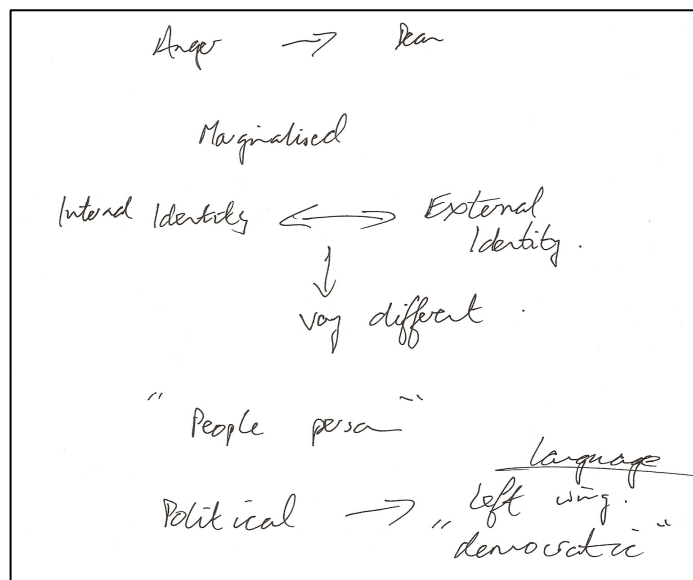 Anger → Dean
Marginalised
Internal Identity ↔ External
Identity.
↓
very different.
"People person"
language
Political → left wing.
"democratic"